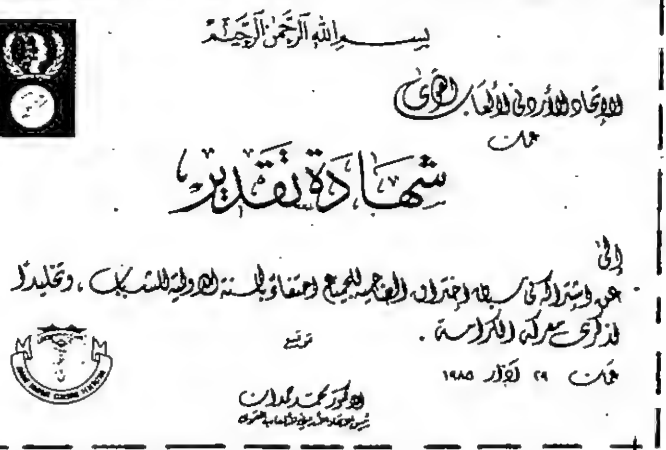 بسم الله الرحمن الرحيم
الاتحاد الأردني لألعاب القوى
عمان
شهادة تقدير
إلى
عن اشتراكه في سباق اختراق الضاحية للجميع احتفاءً بالسنة الدولية للشباب، وتخليدًا
لذكرى معركة الكرامة.
توقيع
عمان ٢٩ آذار ١٩٨٥
الدكتور محمد حمدان
رئيس الاتحاد الأردني لألعاب القوى